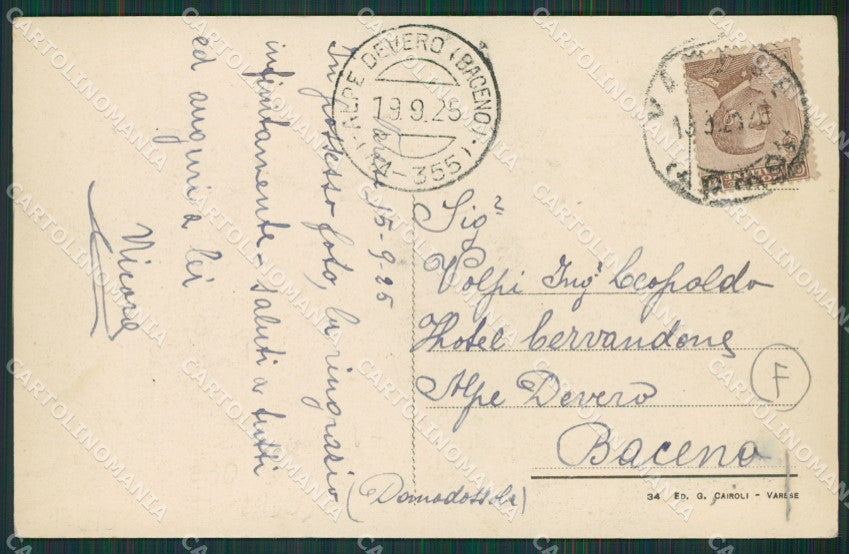 Varese 15-9-25
In possesso foto, la ringrazio
infinitamente - saluti a tutti
ed auguri a lei
ALPE DEVERO (BACENO)
19.9.25
(4-355)
Sigr
Volpi Ingr Leopoldo
Hotel Cervandone
Alpe Devero
Baceno
(Domodossola)
F
34 ED. G. CAIROLI - VARESE
CARTOLINOMANIA